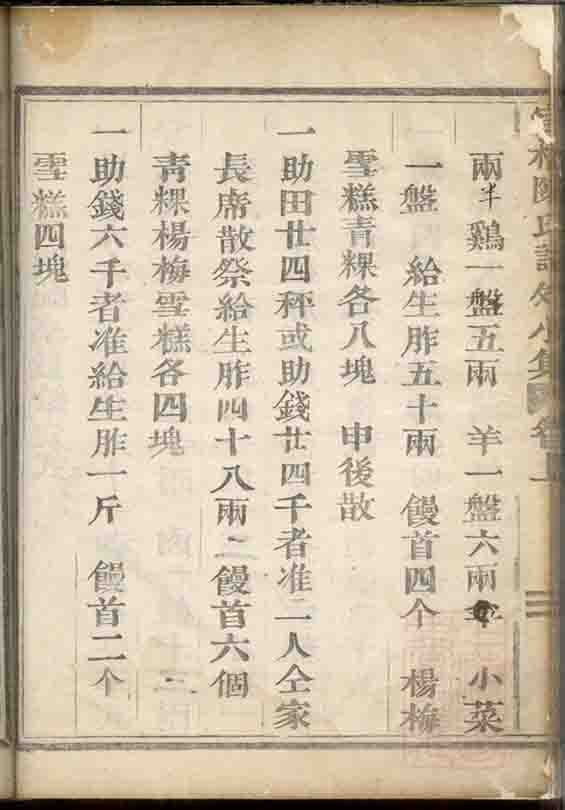 兩半鷄一盤五兩　羊一盤六兩　小菜
一盤　給生胙五十兩　饅首四个　楊梅
雪糕青粿各八塊　申後散
一助田廿四秤或助錢廿四千者准二人仝家
長席散祭給生胙四十八兩二饅首六個
青粿楊梅雪糕各四塊
一助錢六千者准給生胙一斤　饅首二个
雪糕四塊